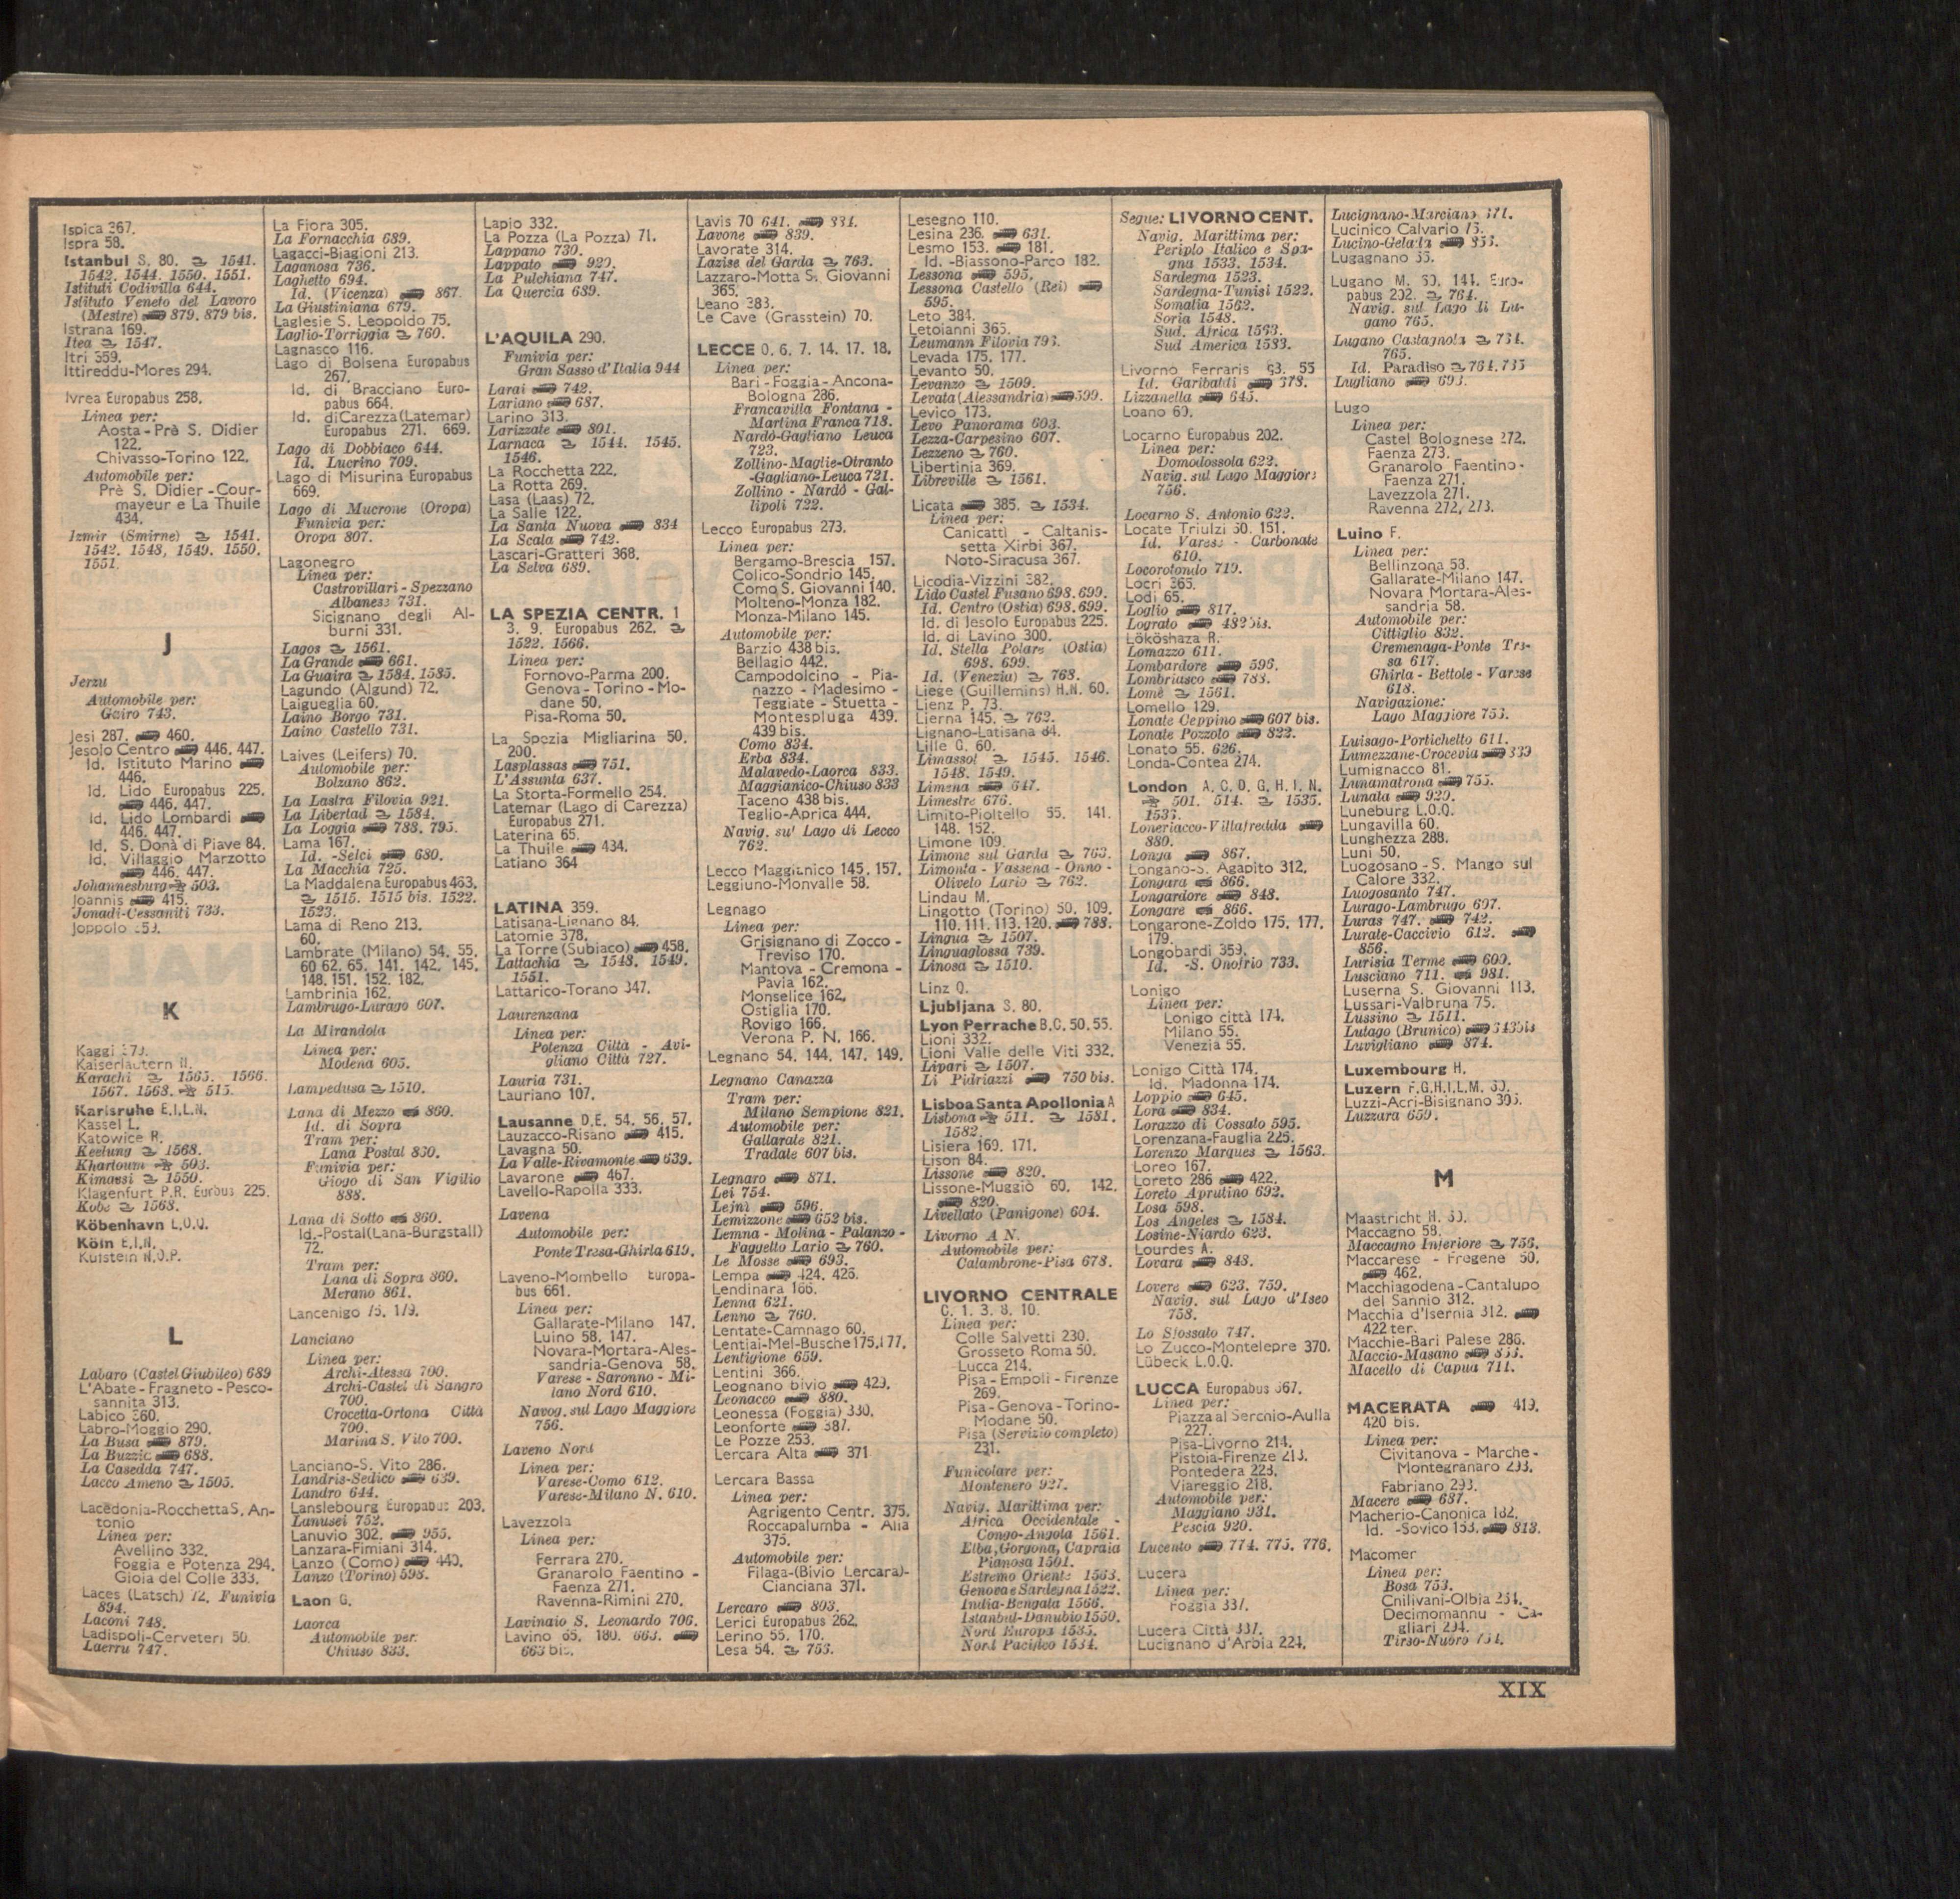 Ispica 367.
Ispra 58.
Istanbul S. 80. 1541.
1542. 1544. 1550. 1551.
Istituti Codivilla 644.
Istituto Veneto del Lavoro
(Mestre) 879. 879 bis.
Istrana 169.
Itea 1547.
Itri 359.
Ittireddu-Mores 294.
Ivrea Europabus 258.
Linea per:
Aosta-Prè S. Didier
122.
Chivasso-Torino 122.
Automobile per:
Prè S. Didier-Cour-
mayeur e La Thuile
434.
Izmir (Smirne) 1541.
1542. 1548, 1549. 1550.
1551.
J
Jerzu
Automobile per:
Gairo 743.
Jesi 287. 460.
Jesolo Centro 446. 447.
Id. Istituto Marino
446.
Id. Lido Europabus 225.
446. 447.
Id. Lido Lombardi
446. 447.
Id. S. Donà di Piave 84.
Id. Villaggio Marzotto
446. 447.
Johannesburg 503.
Joannis 415.
Jonadi-Cessaniti 733.
Joppolo
K
Kaggi
Kaiserlautern
Karachi 1565. 1566.
1567. 1568. 515.
Karlsruhe E.I.L.N.
Kassel L.
Katowice R.
Keelung 1568.
Khartoum 503.
Kimassi 1550.
Klagenfurt P.R. Eurbus 225.
Kobe 1568.
Köbenhavn L.O.Q.
Köln E.I.N.
Kufstein N.O.P.
L
Labaro (Castel Giubileo) 689
L'Abate-Fragneto-Pesco-
sannita 313.
Labico 360.
Labro-Moggio 290.
La Busa 879.
La Buzzic 688.
La Casedda 747.
Lacco Ameno 1505.
Lacedonia-Rocchetta S. An-
tonio
Linea per:
Avellino 332.
Foggia e Potenza 294.
Gioia del Colle 333.
Laces (Latsch) 72. Funivia
894.
Laconi 748.
Ladispoli-Cerveteri 50.
Laerru 747.
La Fiora 305.
La Fornacchia 689.
Lagacci-Biagioni 213.
Laganosa 736.
Laghetto 694.
Id. (Vicenza) 867.
La Giustiniana 679.
Laglesie S. Leopoldo 75.
Laglio-Torriggia 760.
Lagnasco 116.
Lago di Bolsena Europabus
267.
Id. di Bracciano Euro-
pabus 664.
Id. di Carezza (Latemar)
Europabus 271. 669.
Lago di Dobbiaco 644.
Id. Lucrino 709.
Lago di Misurina Europabus
669.
Lago di Mucrone (Oropa)
Funivia per:
Oropa 807.
Lagonegro
Linea per:
Castrovillari-Spezzano
Albanese 731.
Sicignano degli Al-
burni 331.
Lagos 1561.
La Grande 661.
La Guaira 1584. 1585.
Lagundo (Algund) 72.
Laigueglia 60.
Laino Borgo 731.
Laino Castello 731.
Laives (Leifers) 70.
Automobile per:
Bolzano 862.
La Lastra Filovia 921.
La Libertad 1584.
La Loggia 788. 795.
Lama 167.
Id. -Selci 680.
La Macchia 725.
La Maddalena Europabus 463.
1515. 1515 bis. 1522.
1523.
Lama di Reno 213.
60.
Lambrate (Milano) 54. 55.
60 62. 65. 141. 142. 145.
148. 151. 152. 182.
Lambrinia 162.
Lambrugo-Lurago 607.
La Mirandola
Linea per:
Modena 605.
Lampedusa 1510.
Lana di Mezzo 860.
Id. di Sopra
Tram per:
Lana Postal 860.
Funivia per:
Giogo di San Vigilio
888.
Lana di Sotto 860.
Id.-Postal (Lana-Burgstall)
72.
Tram per:
Lana di Sopra 860.
Merano 861.
Lancenigo 75. 179.
Lanciano
Linea per:
Archi-Atessa 700.
Archi-Castel di Sangro
700.
Crocetta-Ortona Città
700.
Marina S. Vito 700.
Lanciano-S. Vito 286.
Landris-Sedico 639.
Landro 644.
Lanslebourg Europabus 203.
Lanusei 752.
Lanuvio 302. 955.
Lanzara-Fimiani 314.
Lanzo (Como) 440.
Lanzo (Torino) 598.
Laon G.
Laorca
Automobile per:
Chiuso 833.
Lapio 332.
La Pozza (La Pozza) 71.
Lappano 730.
Lappato 929.
La Pulchiana 747.
La Quercia 689.
L'AQUILA 290.
Funivia per:
Gran Sasso d'Italia 944
Larai 742.
Lariano 687.
Larino 313.
Larizzate 801.
Larnaca 1544. 1545.
1546.
La Rocchetta 222.
La Rotta 269.
Lasa (Laas) 72.
La Salle 122.
La Santa Nuova 834
La Scala 742.
Lascari-Gratteri 368.
La Selva 689.
LA SPEZIA CENTR. 1
3. 9. Europabus 262.
1522. 1566.
Linea per:
Fornovo-Parma 200.
Genova-Torino-Mo-
dane 50.
Pisa-Roma 50.
La Spezia Migliarina 50.
200.
Lasplassas 751.
L'Assunta 637.
La Storta-Formello 254.
Latemar (Lago di Carezza)
Europabus 271.
Laterina 65.
La Thuile 434.
Latiano 364
LATINA 359.
Latisana-Lignano 84.
Latomie 378.
La Torre (Subiaco) 458.
Lattachia 1548. 1549.
1551.
Lattarico-Torano 347.
Laurenzana
Linea per:
Potenza Città - Avi-
gliano Città 727.
Lauria 731.
Lauriano 107.
Lausanne D.E. 54. 56. 57.
Lauzacco-Risano 415.
Lavagna 50.
La Valle-Rivamonte 639.
Lavarone 467.
Lavello-Rapolla 333.
Lavena
Automobile per:
Ponte Tresa-Ghirla 619.
Laveno-Mombello Europa-
bus 661.
Linea per:
Gallarate-Milano 147.
Luino 58. 147.
Novara-Mortara-Ales-
sandria-Genova 58.
Varese - Saronno - Mi-
lano Nord 610.
Navog. sul Lago Maggiore
756.
Laveno Nord
Linea per:
Varese-Como 612.
Varese-Milano N. 610.
Lavezzola
Linea per:
Ferrara 270.
Granarolo Faentino -
Faenza 271.
Ravenna-Rimini 270.
Lavinaio S. Leonardo 706.
Lavino 65. 180. 663.
663 bis.
Lavis 70 641. 881.
Lavone 839.
Lavorate 314.
Lazise del Garda 763.
Lazzaro-Motta S. Giovanni
365.
Leano 383.
Le Cave (Grasstein) 70.
LECCE 0. 6. 7. 14. 17. 18.
Linea per:
Bari-Foggia-Ancona-
Bologna 286.
Francavilla Fontana -
Martina Franca 718.
Nardò-Gagliano Leuca
723.
Zollino-Maglie-Otranto
-Gagliano-Leuca 721.
Zollino - Nardò - Gal-
lipoli 722.
Lecco Europabus 273.
Linea per:
Bergamo-Brescia 157.
Colico-Sondrio 145.
Como S. Giovanni 140.
Molteno-Monza 182.
Monza-Milano 145.
Automobile per:
Barzio 438 bis.
Bellagio 442.
Campodolcino - Pia-
nazzo - Madesimo -
Teggiate - Stuetta -
Montespluga 439.
439 bis.
Como 834.
Erba 834.
Malavedo-Laorca 833.
Maggianico-Chiuso 833
Taceno 438 bis.
Teglio-Aprica 444.
Navig. sul Lago di Lecco
762.
Lecco Maggianico 145. 157.
Leggiuno-Monvalle 58.
Legnago
Linea per:
Grisignano di Zocco -
Treviso 170.
Mantova - Cremona -
Pavia 162.
Monselice 162.
Ostiglia 170.
Rovigo 166.
Verona P. N. 166.
Legnano 54. 144. 147. 149.
Legnano Canazza
Tram per:
Milano Sempione 821.
Automobile per:
Gallarate 821.
Tradate 607 bis.
Legnaro 871.
Lei 754.
Lejni 596.
Lemizzone 652 bis.
Lemna - Molina - Palanzo -
Faggeto Lario 760.
Le Mosse 693.
Lempa 424. 426.
Lendinara 166.
Lenna 621.
Lenno 760.
Lentate-Camnago 60.
Lentiai-Mel-Busche 175.177.
Lentigione 659.
Lentini 366.
Leognano bivio 429.
Leonacco 880.
Leonessa (Foggia) 330.
Leonforte 387.
Le Pozze 253.
Lercara Alta 371
Lercara Bassa
Linea per:
Agrigento Centr. 375.
Roccapalumba - Alia
375.
Automobile per:
Filaga-(Bivio Lercara)-
Cianciana 371.
Lercaro 803.
Lerici Europabus 262.
Lerino 55. 170.
Lesa 54. 756.
Lesegno 110.
Lesina 236. 631.
Lesmo 153. 181.
Id. -Biassono-Parco 182.
Lessona 595.
Lessona Castello (Rei)
595.
Leto 384.
Letoianni 365.
Leumann Filovia 793.
Levada 175. 177.
Levanto 50.
Levanzo 1509.
Levata (Alessandria) 599.
Levico 173.
Levo Panorama 603.
Lezza-Carpesino 607.
Lezzeno 760.
Libertinia 369.
Libreville 1561.
Licata 385. 1534.
Linea per:
Canicattì - Caltanis-
setta Xirbi 367.
Noto-Siracusa 367.
Licodia-Vizzini 382.
Lido Castel Fusano 698.699.
Id. Centro (Ostia) 698.699.
Id. di Iesolo Europabus 225.
Id. di Lavino 300.
Id. Stella Polare (Ostia)
698. 699.
Id. (Venezia) 768.
Liege (Guillemins) H.N. 60.
Lienz P. 73.
Lierna 145. 762.
Lignano-Latisana 84.
Lille G. 60.
Limassol 1545. 1546.
1548. 1549.
Limena 647.
Limestre 676.
Limito-Pioltello 55. 141.
148. 152.
Limone 109.
Limone sul Garda 763.
Limonta - Vassena - Onno -
Oliveto Lario 762.
Lindau M.
Lingotto (Torino) 50. 109.
110.111.113.120. 788.
Lingua 1507.
Linguaglossa 739.
Linosa 1510.
Linz O.
Ljubljana S. 80.
Lyon Perrache B.C. 50. 55.
Lioni 332.
Lioni Valle delle Viti 332.
Lipari 1507.
Li Pidriazzi 750 bis.
Lisboa Santa Apollonia A
Lisbona 511. 1581.
1582.
Lisiera 169. 171.
Lison 84.
Lissone 820.
Lissone-Muggiò 60. 142.
820.
Livellato (Panigone) 604.
Livorno A N.
Automobile per:
Calambrone-Pisa 678.
LIVORNO CENTRALE
C. 1. 3. 8. 10.
Linea per:
Colle Salvetti 230.
Grosseto Roma 50.
Lucca 214.
Pisa - Empoli - Firenze
269.
Pisa - Genova - Torino-
Modane 50.
Pisa (Servizio completo)
231.
Funicolare per:
Montenero 927.
Navig. Marittima per:
Africa Occidentale -
Congo-Angola 1561.
Elba, Gorgona, Capraia
Pianosa 1501.
Estremo Oriente 1563.
Genova e Sardegna 1522.
India-Bengala 1566.
Istanbul-Danubio 1550.
Nord Europa 1535.
Nord Pacifico 1584.
Segue: LIVORNO CENT.
Navig. Marittima per:
Periplo Italico e Spa-
gna 1533. 1534.
Sardegna 1523.
Sardegna-Tunisi 1522.
Somalia 1562.
Soria 1548.
Sud. Africa 1563.
Sud America 1583.
Livorno Ferraris 53. 55
Id. Garibaldi 378.
Lizzanella 645.
Loano 60.
Locarno Europabus 202.
Linea per:
Domodossola 622.
Navig. sul Lago Maggiore
756.
Locarno S. Antonio 622.
Locate Triulzi 50. 151.
Id. Varese - Carbonate
610.
Locorotondo 719.
Locri 365.
Lodi 65.
Loglio 817.
Lograto 482 bis.
Lököshaza R.
Lomazzo 611.
Lombardore 596.
Lombriasco 788.
Lomè 1561.
Lomello 129.
Lonate Ceppino 607 bis.
Lonate Pozzolo 822.
Lonato 55. 626.
Londa-Contea 274.
London A. C. D. G. H. I. N.
501. 514. 1535.
1536.
Loneriacco-Villafredda
880.
Longa 867.
Longano-S. Agapito 312.
Longara 866.
Longardore 848.
Longare 866.
Longarone-Zoldo 175. 177.
179.
Longobardi 359.
Id. -S. Onofrio 733.
Lonigo
Linea per:
Lonigo città 174.
Milano 55.
Venezia 55.
Lonigo Città 174.
Id. Madonna 174.
Loppio 645.
Lora 834.
Lorazzo di Cossato 595.
Lorenzana-Fauglia 225.
Lorenzo Marques 1563.
Loreo 167.
Loreto 286 422.
Loreto Aprutino 692.
Losa 598.
Los Angeles 1584.
Losine-Niardo 623.
Lourdes A.
Lovara 848.
Lovere 623. 759.
Navig. sul Lago d'Iseo
758.
Lo Sfossato 747.
Lo Zucco-Montelepre 370.
Lübeck L.O.Q.
LUCCA Europabus 667.
Linea per:
Piazza al Serchio-Aulla
227.
Pisa-Livorno 214.
Pistoia-Firenze 213.
Pontedera 223.
Viareggio 218.
Automobile per:
Maggiano 931.
Pescia 920.
Lucento 774. 775. 776.
Lucera
Linea per:
Foggia 337.
Lucera Città 337.
Lucignano d'Arbia 224.
Lucignano-Marciano 671.
Lucinico Calvario 75.
Lucino-Gelada 853.
Lugagnano 55.
Lugano M. 50. 141. Euro-
pabus 202. 764.
Navig. sul Lago di Lu-
gano 765.
Lugano Castagnola 764.
765.
Id. Paradiso 764.765
Lugliano 693.
Lugo
Linea per:
Castel Bolognese 272.
Faenza 273.
Granarolo Faentino-
Faenza 271.
Lavezzola 271.
Ravenna 272, 273.
Luino F.
Linea per:
Bellinzona 58.
Gallarate-Milano 147.
Novara Mortara-Ales-
sandria 58.
Automobile per:
Cittiglio 832.
Cremenaga-Ponte Tre-
sa 617.
Ghirla - Bettole - Varese
618.
Navigazione:
Lago Maggiore 756.
Luisago-Portichetto 611.
Lumezzane-Crocevia 839
Lumignacco 81.
Lunamatrona 755.
Lunata 929.
Luneburg L.O.Q.
Lungavilla 60.
Lunghezza 288.
Luni 50.
Luogosano-S. Mango sul
Calore 332.
Luogosanto 747.
Lurago-Lambrugo 607.
Luras 747. 742.
Lurate-Caccivio 612.
856.
Lurisia Terme 609.
Lusciano 711. 981.
Luserna S. Giovanni 113.
Lussari-Valbruna 75.
Lussino 1511.
Lutago (Brunico) 643bis
Luvigliano 874.
Luxembourg H.
Luzern F.G.H.I.L.M. 60.
Luzzi-Acri-Bisignano 305.
Luzzara 659.
M
Maastricht H. 60.
Maccagno 58.
Maccagno Inferiore 756.
Maccarese - Fregene 50.
462.
Macchiagodena-Cantalupo
del Sannio 312.
Macchia d'Isernia 312.
422 ter.
Macchie-Bari Palese 286.
Maccio-Masano 853.
Macello di Capua 711.
MACERATA 419.
420 bis.
Linea per:
Civitanova - Marche-
Montegranaro 293.
Fabriano 293.
Macere 687.
Macherio-Canonica 182.
Id. -Sovico 153. 818.
Macomer
Linea per:
Bosa 753.
Chilivani-Olbia 294.
Decimomannu - Ca-
gliari 294.
Tirso-Nuoro 754.
XIX